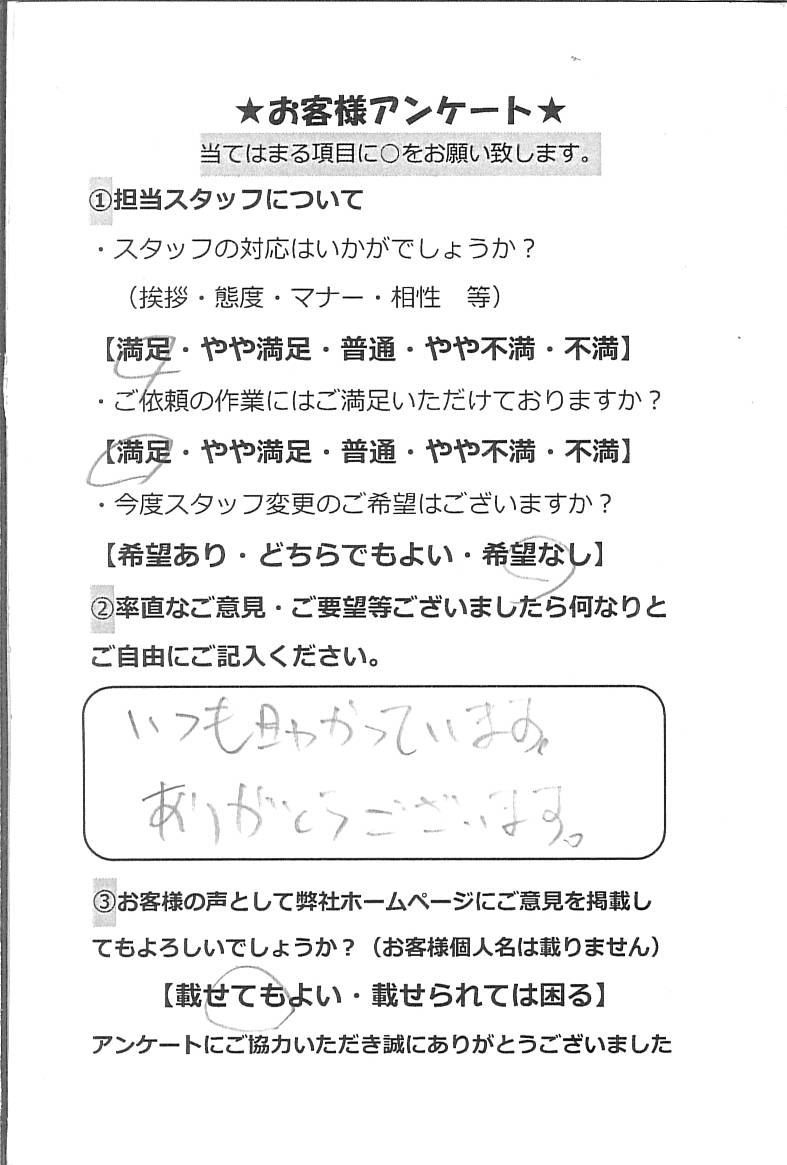 ★お客様アンケート★
当てはまる項目に○をお願い致します。
①担当スタッフについて
・スタッフの対応はいかがでしょうか？
（挨拶・態度・マナー・相性　等）
【満足・やや満足・普通・やや不満・不満】
・ご依頼の作業にはご満足いただけておりますか？
【満足・やや満足・普通・やや不満・不満】
・今度スタッフ変更のご希望はございますか？
【希望あり・どちらでもよい・希望なし】
②率直なご意見・ご要望等ございましたら何なりと
ご自由にご記入ください。
いつも助かっています。
ありがとうございます。
③お客様の声として弊社ホームページにご意見を掲載し
てもよろしいでしょうか？（お客様個人名は載りません）
【載せてもよい・載せられては困る】
アンケートにご協力いただき誠にありがとうございました